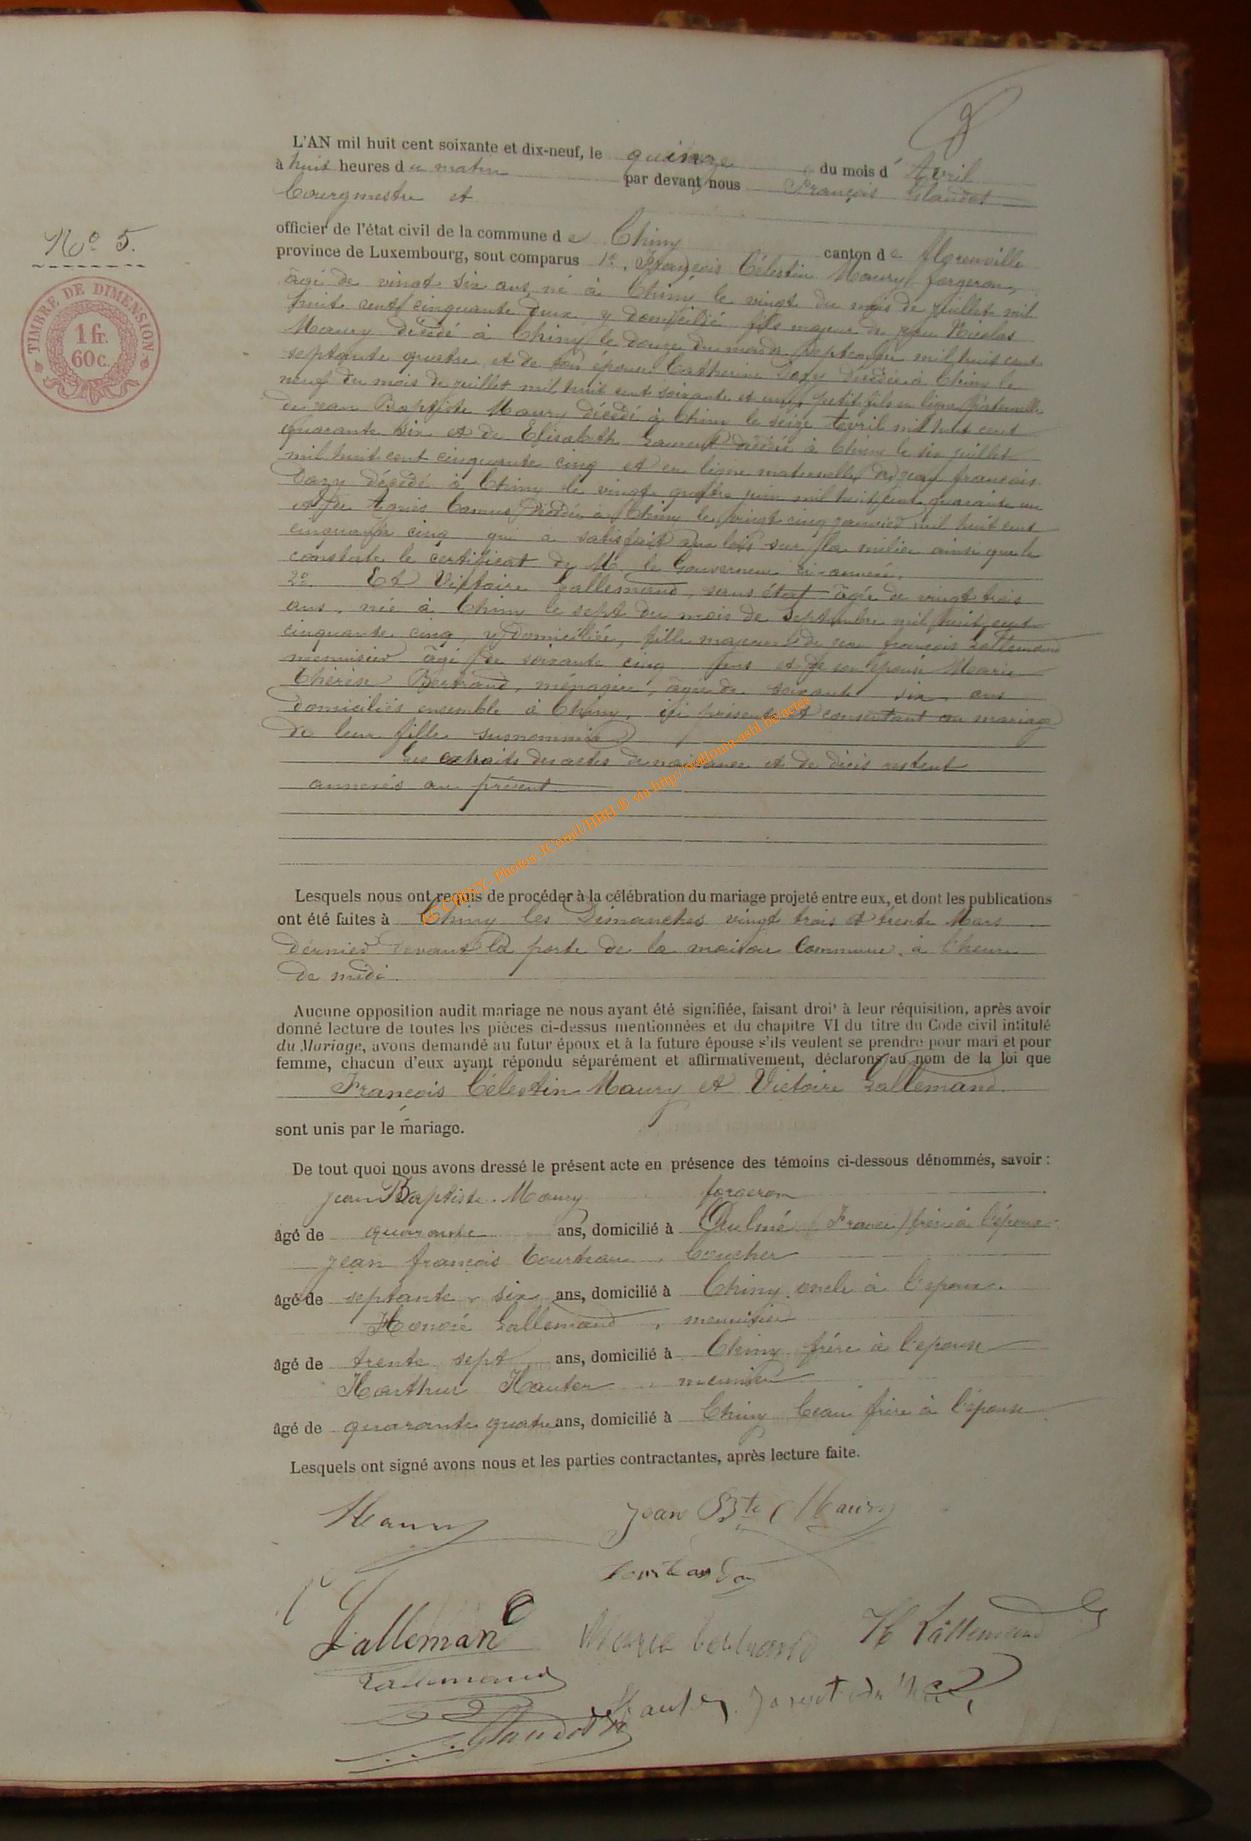 L'AN mil huit cent soixante et dix-neuf, le quinze du mois d' Avril
à huit heures du matin par devant nous François Glaudot
bourgmestre et
officier de l'état civil de la commune de Chiny canton de florenville
N° 5.
province de Luxembourg, sont comparus 1°. François Célestin Maury forgeron,
âgé de vingt six ans né à Chiny le vingt du mois de juillet mil
huit cent cinquante deux y domicilié fils majeur de feu Nicolas
Maury décédé à Chiny le douze du mois de septembre mil huit cent
septante quatre et de son épouse Catherine décédée à Chiny le
neuf du mois de juillet mil huit cent soixante et petit fils en ligne paternelle
de jean Baptiste Maury décédé à Chiny le seize Avril mil huit cent
quarante six et de Elisabeth Laurent décédée à Chiny le six juillet
mil huit cent cinquante cinq et en ligne maternelle de jean françois
décédé à Chiny le vingt quatre juin mil huit cent quarante un
et de Agnès Camus décédée à Chiny le vingt cinq janvier mil huit cent
cinquante cinq qui a satisfait aux lois sur la milice ainsi que le
constate le certificat de M. le Gouverneur ci-annexé.
2° Et Victoire Lallemand, sans état âgée de vingt trois
ans, née à Chiny le sept du mois de Septembre mil huit cent
cinquante cinq, y domiciliée, fille majeure de jean françois Lallemand
menuisier âgé de soixante cinq ans et de son épouse Marie
Thérèse Bertrand, ménagère, âgée de soixante six ans
domiciliés ensemble à Chiny, ici présents et consentant au mariage
de leur fille surnommée
Les extraits des actes de naissance et de décès restent
annexés au présent
TIMBRE DE DIMENSION
1 fr.
60 c.
CHINY - Photos
Lesquels nous ont requis de procéder à la célébration du mariage projeté entre eux, et dont les publications
ont été faites à Chiny les Dimanches vingt trois et trente Mars
dernier devant la porte de la maison Commune, à l'heure
de midi.
Aucune opposition audit mariage ne nous ayant été signifiée, faisant droit à leur réquisition, après avoir
donné lecture de toutes les pièces ci-dessus mentionnées et du chapitre VI du titre du Code civil intitulé
du Mariage, avons demandé au futur époux et à la future épouse s'ils veulent se prendre pour mari et pour
femme, chacun d'eux ayant répondu séparément et affirmativement, déclarons au nom de la loi que
François Célestin Maury et Victoire Lallemand.
sont unis par le mariage.
De tout quoi nous avons dressé le présent acte en présence des témoins ci-dessous dénommés, savoir :
jean Baptiste Maury forgeron
âgé de quarante ans, domicilié à (France) frère à l'époux
jean françois
âgé de septante six ans, domicilié à Chiny, oncle à l'époux.
Honoré Lallemand, menuisier
âgé de trente sept ans, domicilié à Chiny frère à l'épouse
Harthur Hauter
âgé de quarante quatre ans, domicilié à Chiny beau frère à l'épouse
Lesquels ont signé avons nous et les parties contractantes, après lecture faite.
Maury Jean Bte Maury
Lallemand Marie bertrand H Lallemand
Lallemand
Glaudot